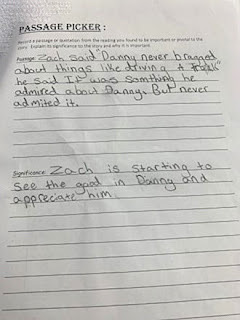 PASSAGE PICKER:
Record a passage or quotation from the reading you found to be important or pivotal to the
story. Explain its significance to the story and why it is important.
Passage: Zach said "Danny never bragged
about things like driving a
he said It was somthing he
admired about Danny. But never
admited it.
Significance: Zach is starting to
see the good in Danny and
appreciate him.